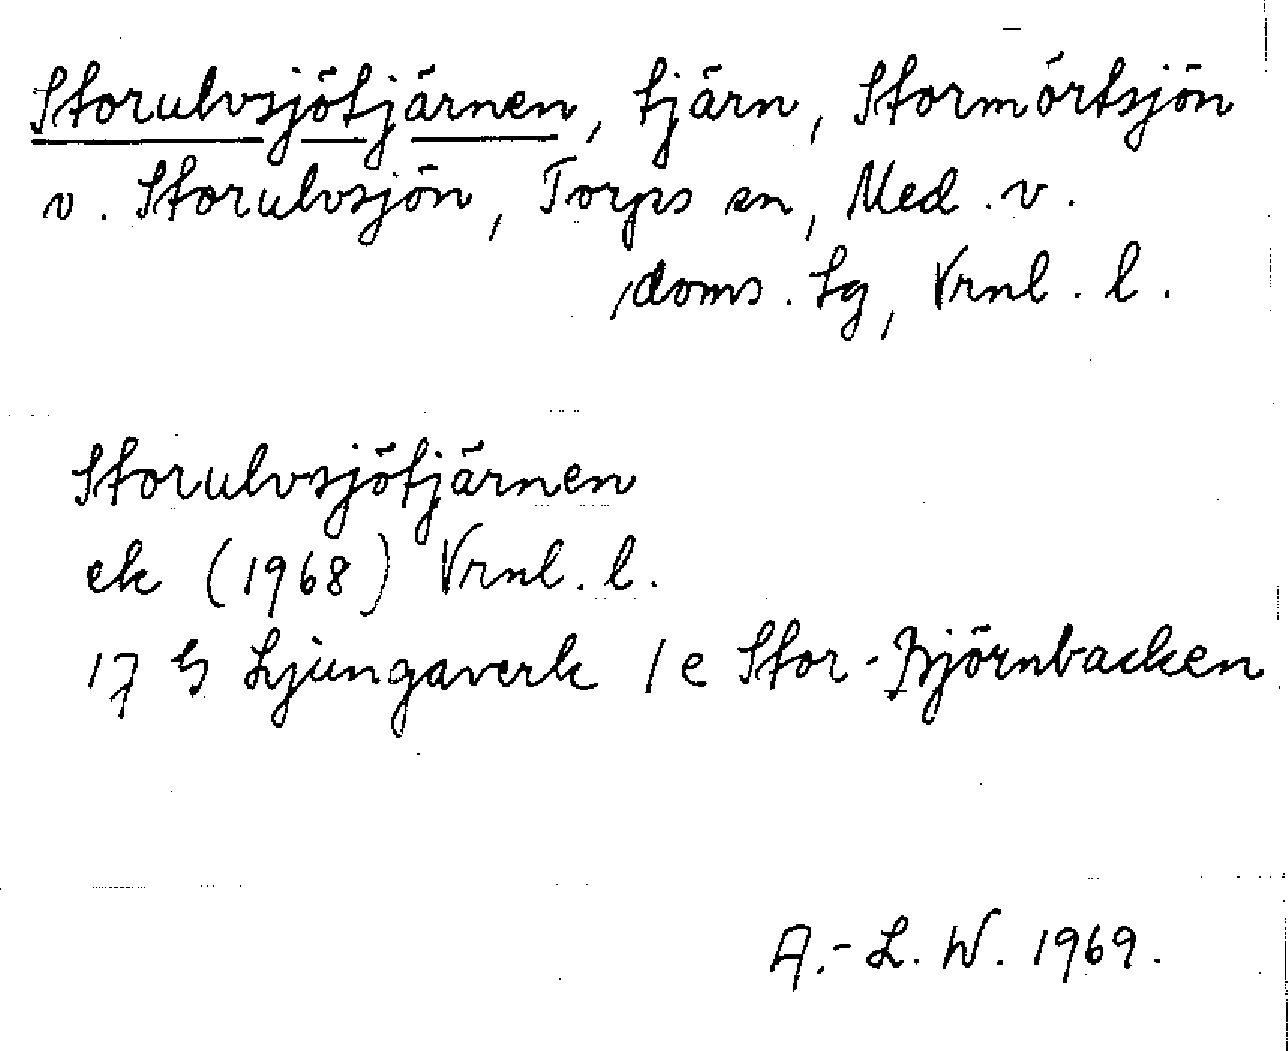 Storulvsjötjärnen, tjärn, Stormörtsjön
v. Storulvsjön, Torps sn, Med. v.
doms. tg, Vrnl. l.
Storulvsjötjärnen
ek (1968) Vrnl. l.
17 G Ljungaverk 1 e Stor-Björnbacken
A.-L. W. 1969.